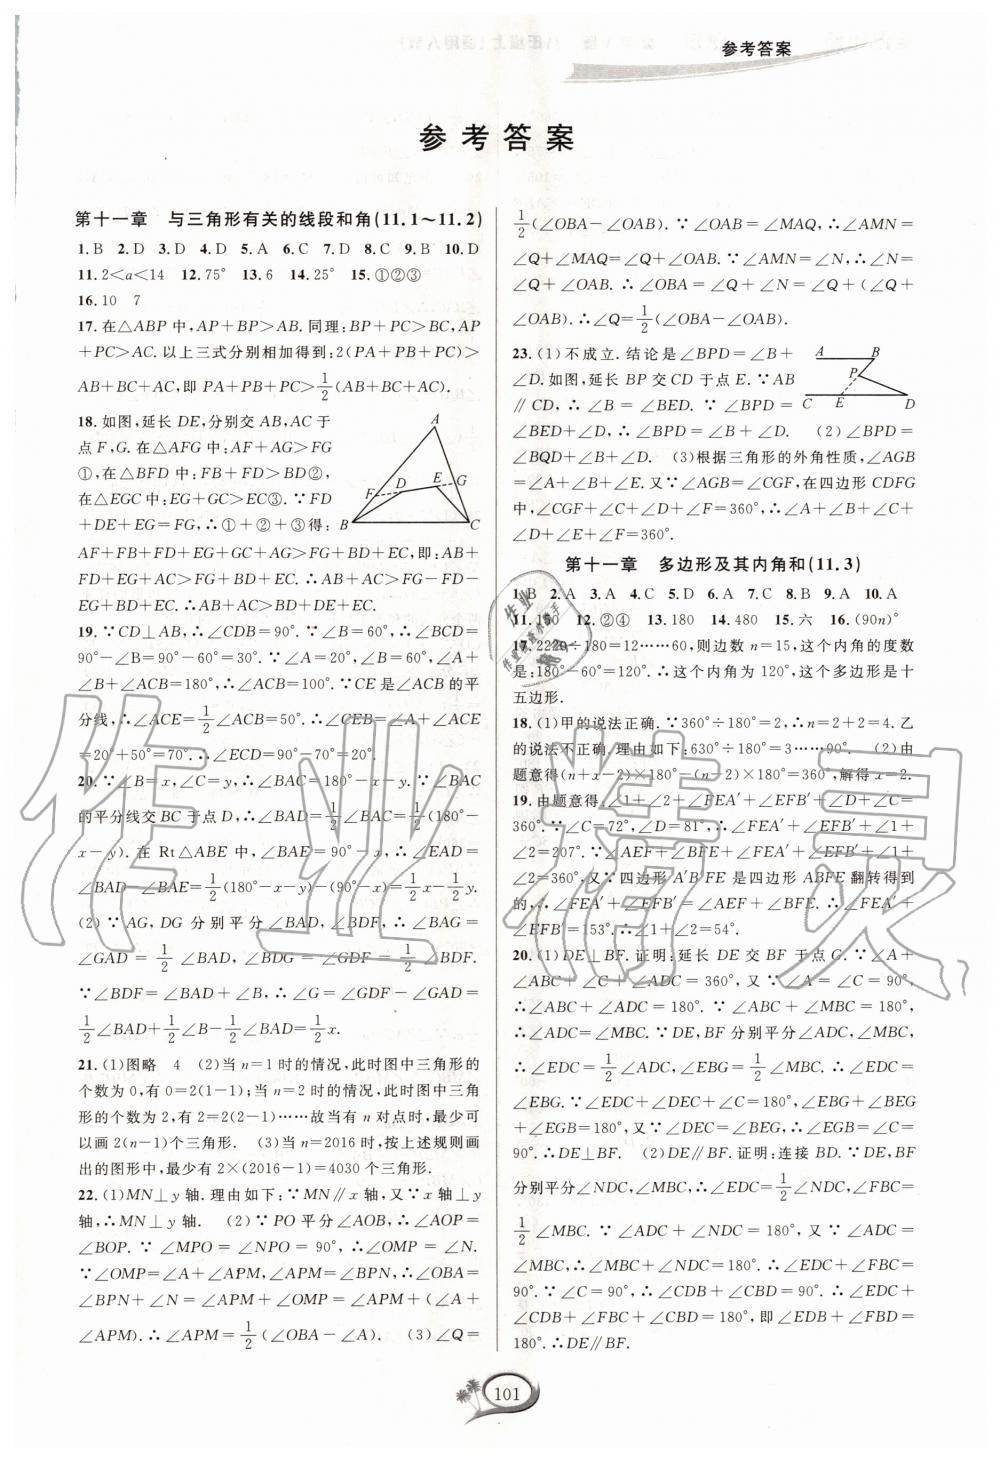 参考答案
参考答案
第十一章 与三角形有关的线段和角(11.1～11.2)
1.B 2.D 3.D 4.D 5.A 6.C 7.D 8.C 9.B 10.D
11.2<a<14 12.75° 13.6 14.25° 15.①②③
16.10 7
17.在△ABP中,AP+BP>AB.同理:BP+PC>BC,AP
+PC>AC.以上三式分别相加得到:2(PA+PB+PC)>
AB+BC+AC,即 PA+PB+PC>1/2(AB+BC+AC).
18.如图,延长DE,分别交AB,AC于
点F,G.在△AFG中:AF+AG>FG
①,在△BFD中:FB+FD>BD②,
在△EGC中:EG+GC>EC③.∵FD
+DE+EG=FG,∴①+②+③得:
AF+FB+FD+EG+GC+AG>FG+BD+EC,即:AB+
FD+EG+AC>FG+BD+EC.∴AB+AC>FG-FD-
EG+BD+EC.∴AB+AC>BD+DE+EC.
19.∵CD⊥AB,∴∠CDB=90°.∵∠B=60°,∴∠BCD=
90°-∠B=90°-60°=30°.∵∠A=20°,∠B=60°,∠A+
∠B+∠ACB=180°,∴∠ACB=100°.∵CE是∠ACB的平
分线,∴∠ACE=1/2∠ACB=50°.∴∠CEB=∠A+∠ACE
=20°+50°=70°.∴∠ECD=90°-70°=20°.
20.∵∠B=x,∠C=y,∴∠BAC=180°-x-y.∵∠BAC
的平分线交BC于点D,∴∠BAD=1/2∠BAC=1/2(180°-
x-y).在 Rt△ABE中,∠BAE=90°-x,∴∠EAD=
∠BAD-∠BAE=1/2(180°-x-y)-(90°-x)=1/2x-1/2y.
(2)∵AG,DG分别平分∠BAD,∠BDF,∴∠BAG=
∠GAD=1/2∠BAD,∠BDG=∠GDF=1/2∠BDF.
∵∠BDF=∠BAD+∠B,∴∠G=∠GDF-∠GAD=
1/2∠BAD+1/2∠B-1/2∠BAD=1/2x.
21.(1)图略 4 (2)当n=1时的情况,此时图中三角形的
个数为0,有0=2(1-1);当n=2时的情况,此时图中三角
形的个数为2,有2=2(2-1)……故当有n对点时,最少可
以画2(n-1)个三角形. (3)当n=2016时,按上述规则画
出的图形中,最少有2×(2016-1)=4030个三角形.
22.(1)MN⊥y轴.理由如下:∵MN∥x轴,又∵x轴⊥y
轴,∴MN⊥y轴. (2)∵PO平分∠AOB,∴∠AOP=
∠BOP.∵∠MPO=∠NPO=90°,∴∠OMP=∠N.
∵∠OMP=∠A+∠APM,∠APM=∠BPN,∴∠OBA=
∠BPN+∠N=∠APM+∠OMP=∠APM+(∠A+
∠APM).∴∠APM=1/2(∠OBA-∠A). (3)∠Q=
1/2(∠OBA-∠OAB).∵∠OAB=∠MAQ,∴∠AMN=
∠Q+∠MAQ=∠Q+∠OAB.∵∠AMN=∠N,∴∠AMN
=∠Q+∠OAB.∴∠OBA=∠Q+∠N=∠Q+(∠Q+
∠OAB).∴∠Q=1/2(∠OBA-∠OAB).
23.(1)不成立.结论是∠BPD=∠B+
∠D.如图,延长BP交CD于点E.∵AB
∥CD,∴∠B=∠BED.∵∠BPD=
∠BED+∠D,∴∠BPD=∠B+∠D. (2)∠BPD=
∠BQD+∠B+∠D. (3)根据三角形的外角性质,∠AGB
=∠A+∠B+∠E.又∵∠AGB=∠CGF,在四边形CDFG
中,∠CGF+∠C+∠D+∠F=360°,∴∠A+∠B+∠C+
∠D+∠E+∠F=360°.
A B P C E D
A D E G F B C
第十一章 多边形及其内角和(11.3)
1.B 2.A 3.A 4.C 5.D 6.A 7.C 8.B 9.A 10.A
12.②④ 13.180 14.480 15.六 16.(90n)°
17.2220÷180=12……60,则边数n=15,这个内角的度数
是:180°-60°=120°.∴这个内角为120°,这个多边形是十
五边形.
18.(1)甲的说法正确.∵360°÷180°=2,∴n=2+2=4.乙
的说法不正确.理由如下:630°÷180°=3……90°. (2)由
题意得(n+x-2)×180°-(n-2)×180°=360°,解得x=2.
19.由题意得:∠1+∠2+∠FEA′+∠EFB′+∠D+∠C=
360°.∵∠C=72°,∠D=81°,∴∠FEA′+∠EFB′+∠1+
∠2=207°.∵∠AEF+∠BFE+∠FEA′+∠EFB′+∠1+
∠2=360°,又∵四边形A′B′FE是四边形ABFE翻转得到
的,∴∠FEA′+∠EFB′=∠AEF+∠BFE.∴∠FEA′+
∠EFB′=153°.∴∠1+∠2=54°.
20.(1)DE⊥BF.证明:延长DE交BF于点G.∵∠A+
∠ABC+∠C+∠ADC=360°,又∵∠A=∠C=90°,
∴∠ABC+∠ADC=180°.∵∠ABC+∠MBC=180°,
∴∠ADC=∠MBC.∵DE,BF分别平分∠ADC,∠MBC,
∴∠EDC=1/2∠ADC,∠EBG=1/2∠MBC.∴∠EDC=
∠EBG.∵∠EDC+∠DEC+∠C=180°,∠EBG+∠BEG
+∠EGB=180°,又∵∠DEC=∠BEG,∴∠EGB=∠C=
90°.∴DE⊥BF. (2)DE∥BF.证明:连接BD.∵DE,BF
分别平分∠NDC,∠MBC,∴∠EDC=1/2∠NDC,∠FBC=
1/2∠MBC.∵∠ADC+∠NDC=180°,又∵∠ADC=
∠MBC,∴∠MBC+∠NDC=180°.∴∠EDC+∠FBC=
90°.∵∠C=90°,∴∠CDB+∠CBD=90°.∴∠EDC+
∠CDB+∠FBC+∠CBD=180°,即∠EDB+∠FBD=
180°.∴DE∥BF.
101
作业精灵